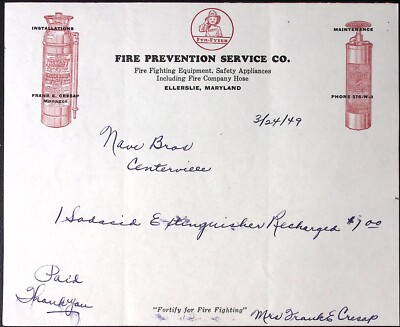 INSTALLATIONS
FYR-FYTER
MAINTENANCE
FIRE PREVENTION SERVICE CO.
Fire Fighting Equipment, Safety Appliances
Including Fire Company Hose
ELLERSLIE, MARYLAND
FRANK E. CRESAP
Manager
PHONE 576-W-3
3/24/49
Nave Bros
Centerville
1 Sodacid Extinguisher Recharged $1.00
Paid
Thank you
"Fortify for Fire Fighting"
Mrs Frank E Cresap